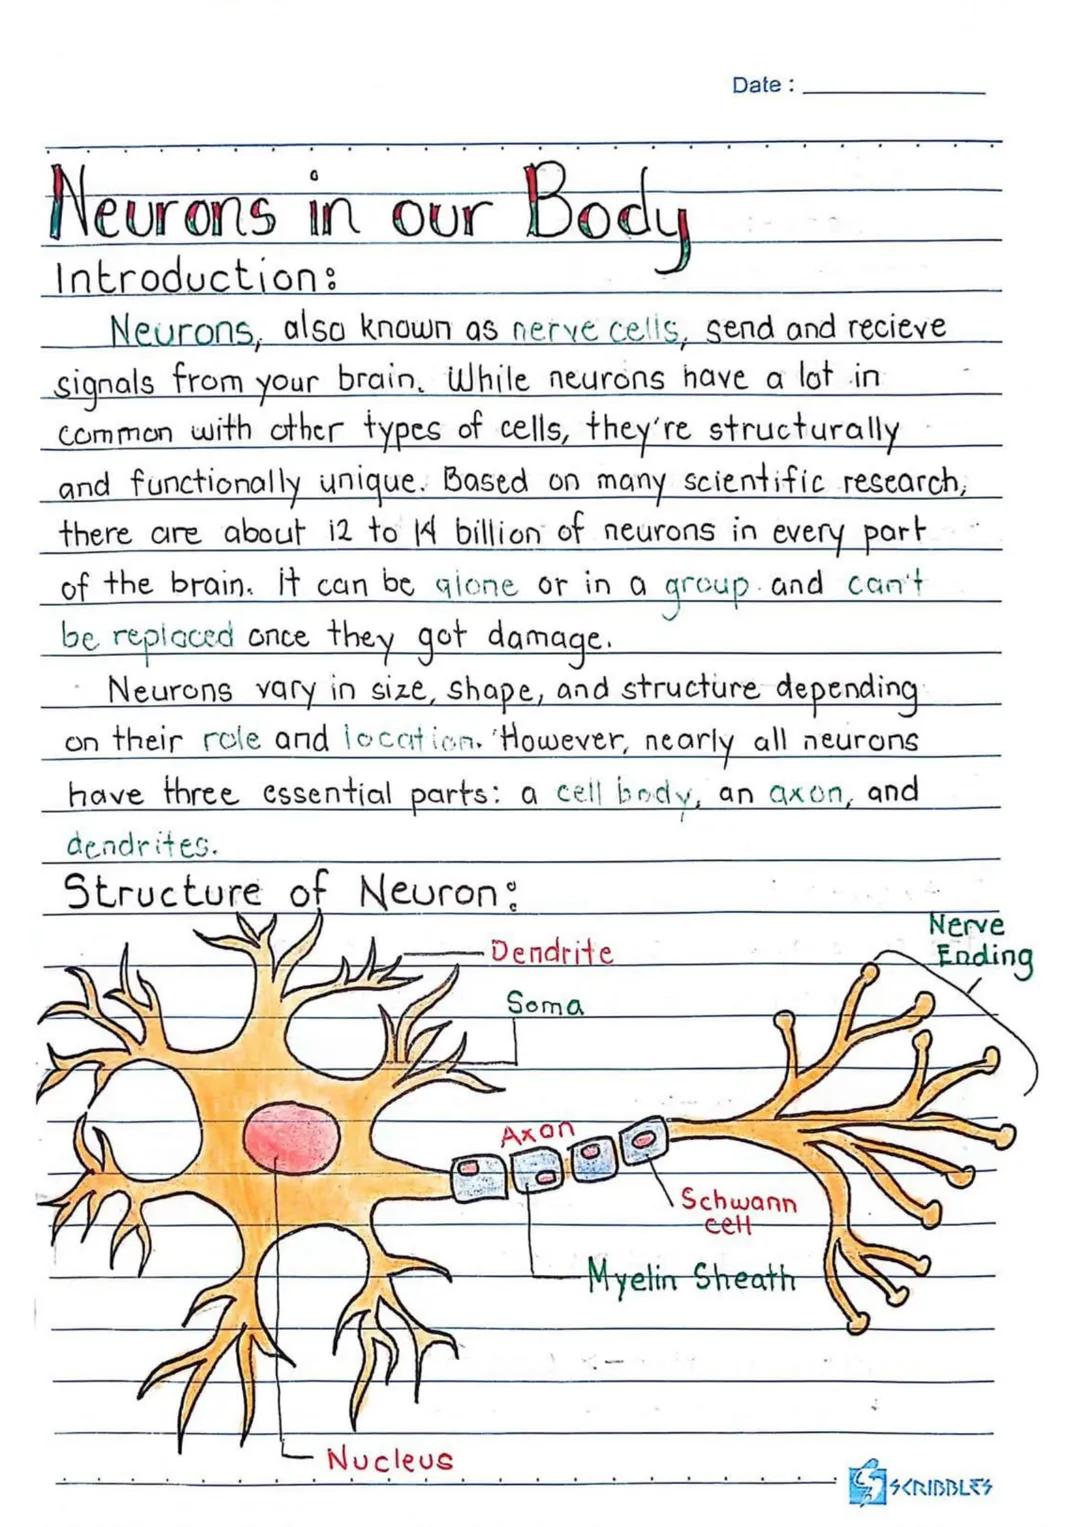 Date :
Neurons in our Body
Introduction:
Neurons, also known as nerve cells, send and recieve
signals from your brain. While neurons have a lot in
common with other types of cells, they're structurally
and functionally unique. Based on many scientific research,
there are about 12 to 14 billion of neurons in every part
of the brain. it can be alone or in a group and can't
be replaced once they got damage.
Neurons vary in size, shape, and structure depending
on their role and location. However, nearly all neurons
have three essential parts: a cell body, an axon, and
dendrites.
Structure of Neuron:
Nerve
Ending
Dendrite
Soma
Axon
Schwann
cell
Myelin Sheath
Nucleus
SCRIBBLES